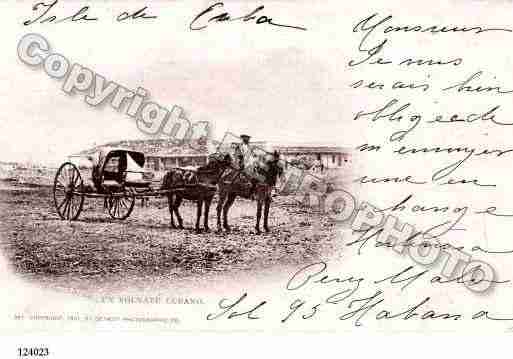 Isle de Cuba
Monsieur
Je vous
serais bien
obligé de
m'envoyer
une en
change
Habana
Perez Malo
Sol 95 Habana
UN VOLANTE CUBANO.
COPYRIGHT, BY DETROIT PHOTOGRAPHIC CO.
Copyrighted RetroPhoto Habana
124023